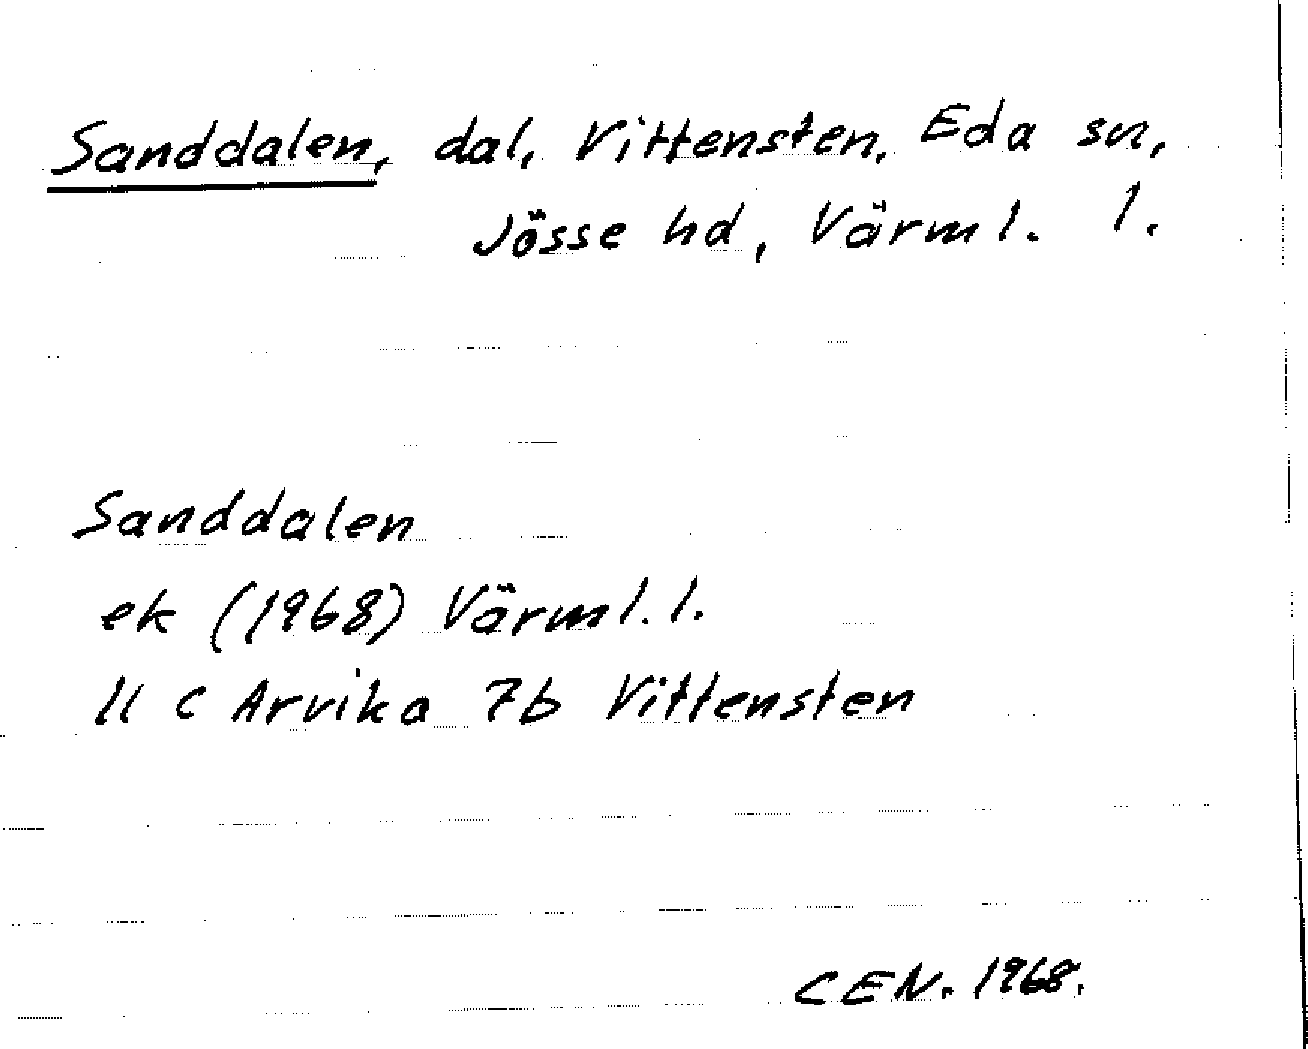 Sanddalen, dal, Vittensten, Eda sn,
Jösse hd, Värml. l.
Sanddalen
ek (1968) Värml. l.
11 C Arvika 7b Vittensten
CEN. 1968.